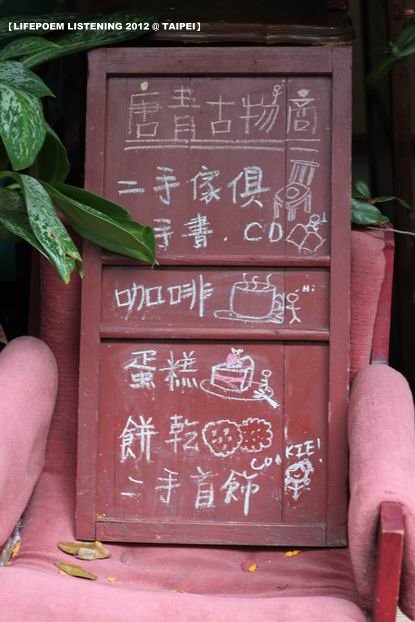 [LIFEPOEM LISTENING 2012 @ TAIPEI]
唐青古物商
二手傢俱
手書.CD
咖啡
Hi
蛋糕
餅乾
COOKIE!
二手首飾